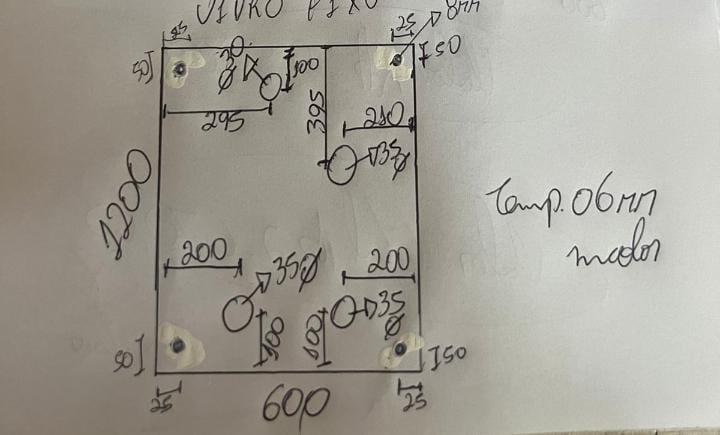 VIDRO FIXO
25
25
8mm
50
I50
30
Ø
100
295
395
210
35
Ø
1200
Temp. 06mm
incolor
200
35Ø
200
100
100
35
Ø
50
I50
25
600
25